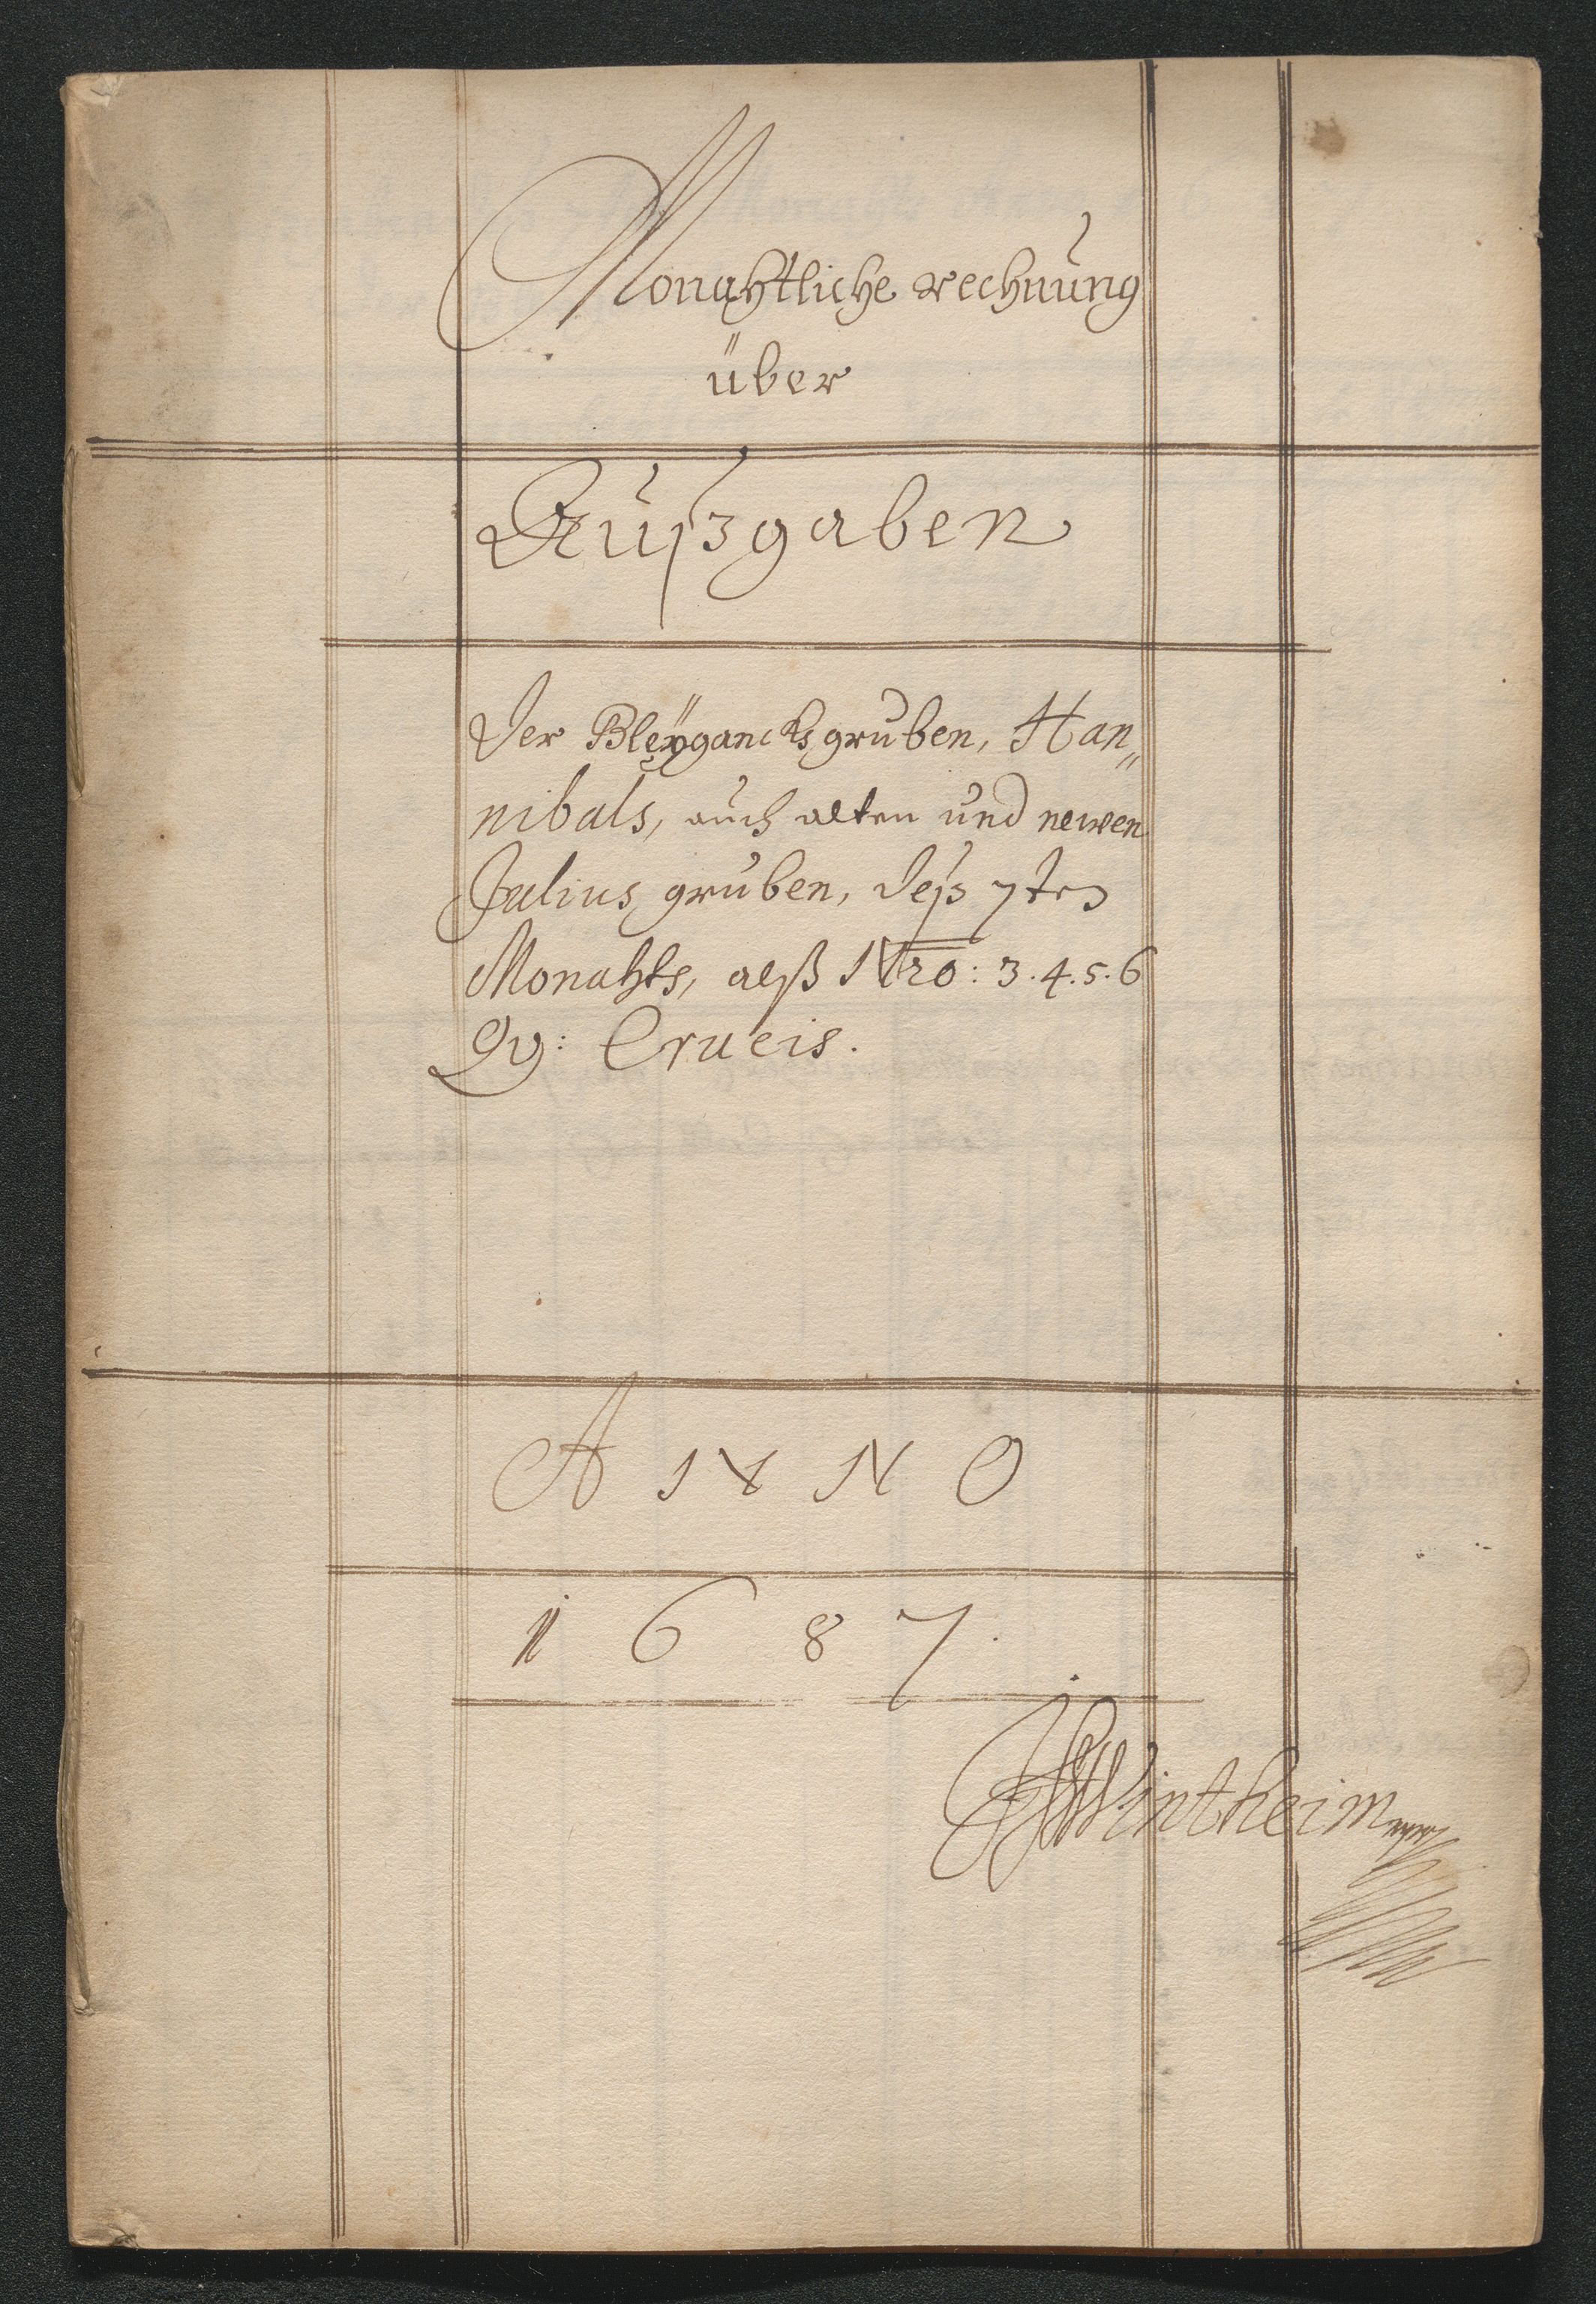 Monahtliche rechnung
über
Außgaben
Der Bleÿgancks gruben, Han„
nibals, auch alten und newen
Julius gruben, deß 7ten
Monahts, alß Nro: 3. 4. 5. 6
Q: Crucis.
ANNO
1687.
Wintheim